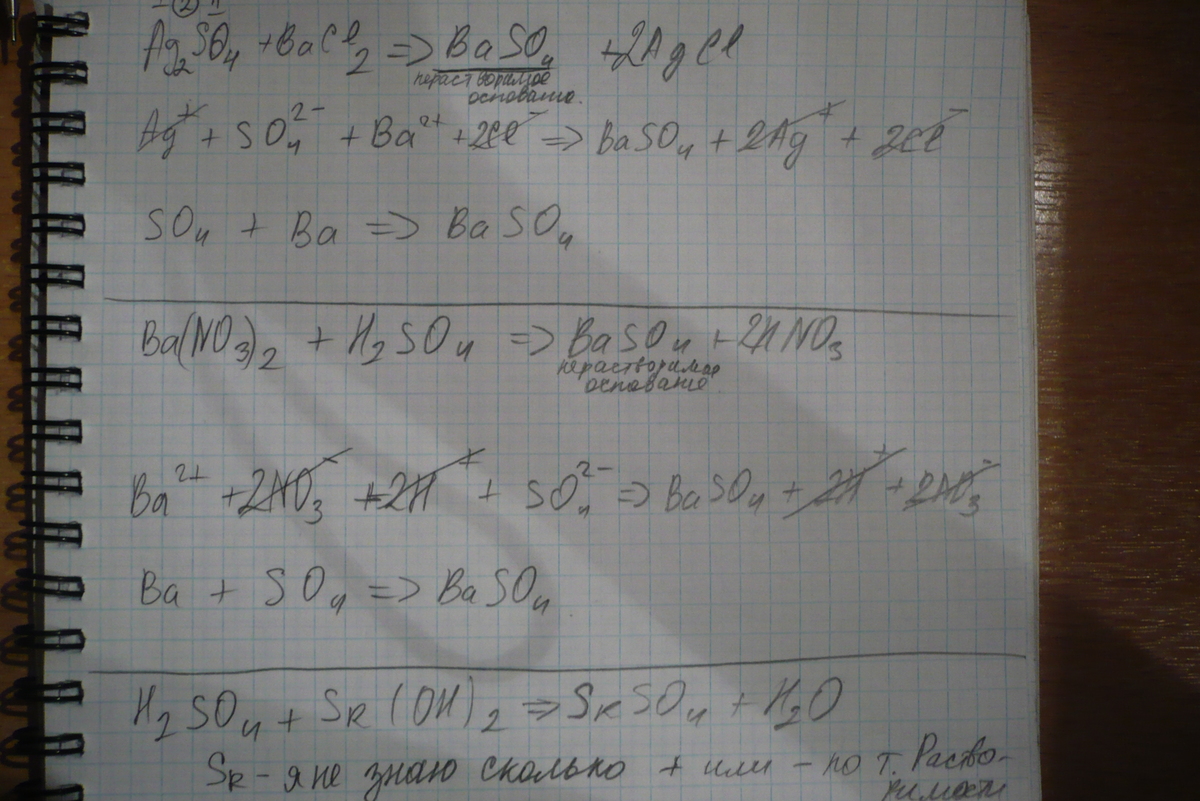 Ag₂SO₄ + BaCl₂ => BaSO₄ + 2AgCl
нерастворимое
основание.
Ag⁺ + SO₄²⁻ + Ba²⁺ + 2Cl⁻ => BaSO₄ + 2Ag⁺ + 2Cl⁻
SO₄ + Ba => BaSO₄
Ba(NO₃)₂ + H₂SO₄ => BaSO₄ + 2HNO₃
нерастворимое
основание.
Ba²⁺ + 2NO₃⁻ + 2H⁺ + SO₄²⁻ => BaSO₄ + 2H⁺ + 2NO₃⁻
Ba + SO₄ => BaSO₄
H₂SO₄ + SR(OH)₂ => SRSO₄ + H₂O
SR - я не знаю сколько + или - по т. Раство-
римости